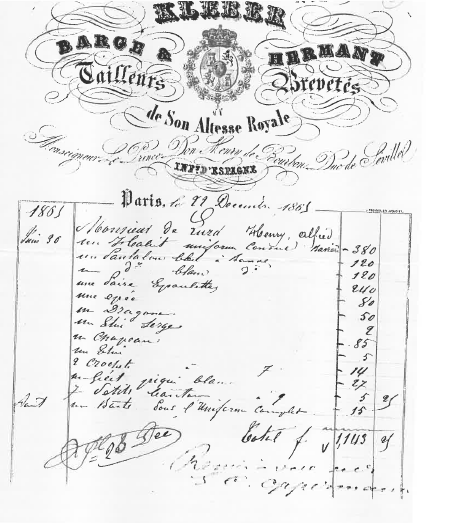 KLEBER
BARGE & HERMANT
Tailleurs Brevetés
de Son Altesse Royale
Monseigneur Le Prince Don Henry de Bourbon Duc de Séville
INFT D'ESPAGNE
Paris, le 22 Décembre 1865
1865
Monsieur de Henry, Alfred
Juin 20 un Habit uniforme - 380
un Pantalon bleu à - 120
un do blanc do - 120
une Paire Epaulettes - 240
une epée - 80
un Dragonne - 50
un Etui Serge - 2
un Chapeau - 85
un Etui - 5
2 Crochets à 7 - 14
un Gilet piqué blanc - 27
7 petits à - 5 25
Aout un Buste Sous l'Uniforme Complet - 15
Total f. 1,143 25